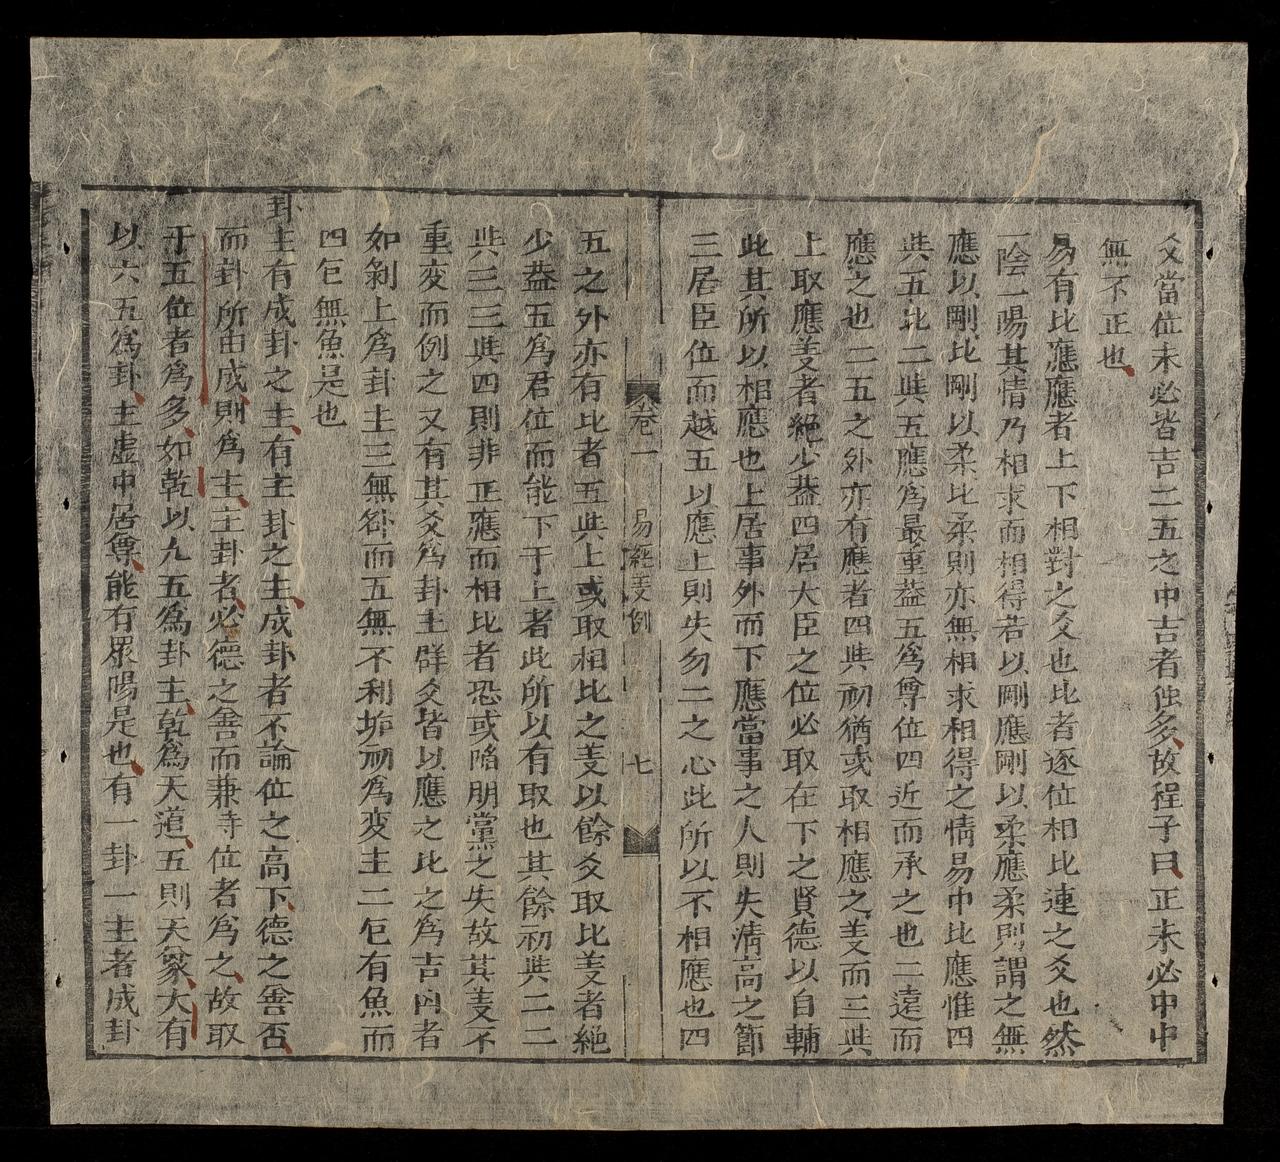 爻當位未必皆吉二五之中吉者独多故程子曰正未必中中
無不正也
易有比應應者上下相對之爻也比者逐位相比連之爻也然
一陰一陽其情乃相求而相得若以剛應剛以柔應柔則謂之無
應以剛比剛以柔比柔則亦無相求相得之情易中比應惟四
𠀋五比二𠀋五應爲最重葢五爲尊位四近而承之也二遠而
應之也二五之外亦有應者四𠀋初猶或取相應之义而三𠀋
上取應义者絶少葢四居大臣之位必取在下之賢德以自輔
此其所以相應也上居事外而下應當事之人則失清高之節
三居臣位而越五以應上則失勿二之心此所以不相應也四
卷一 易經义例 七
五之外亦有比者五𠀋上或取相比之义以餘爻取比义者絶
少葢五爲君位而能下于上者此所以有取也其餘初𠀋二二
𠀋三三𠀋四則非正應而相比者恐或陷朋黨之失故其义不
重变而例之又有其爻爲卦主群爻皆以應之比之爲吉凶者
如剝上爲卦主三無咎而五無不利姤初爲变主二包有魚而
四包無魚是也
卦主有成卦之主有主卦之主成卦者不論位之高下德之善否
而卦所由成則爲主主卦者必德之善而兼寺位者爲之故取
于五位者爲多如乾以九五爲卦主乾爲天道五則天象大有
以六五爲卦主虛中居尊能有眾陽是也有一卦一主者成卦